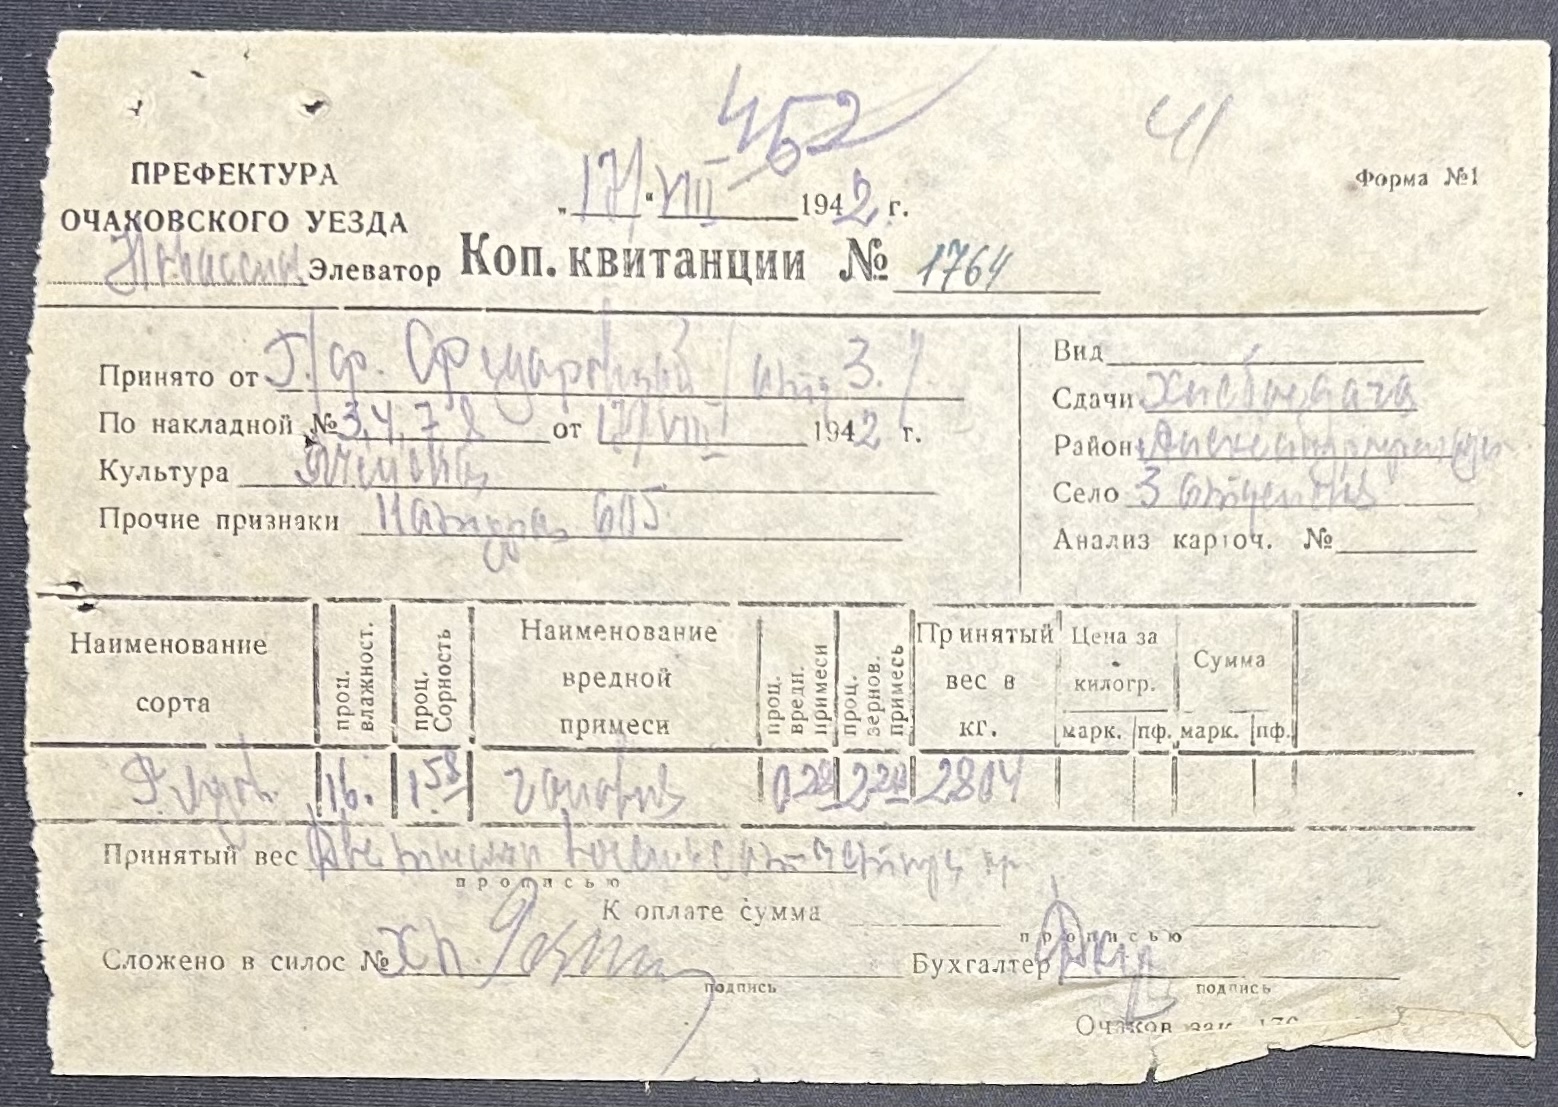 452
41
ПРЕФЕКТУРА
ОЧАКОВСКОГО УЕЗДА
Элеватор
„17" VIII 1942 г.
Форма №1
Коп. квитанции № 1764
Принято от
По накладной № 3, 4, 7, 8 от 17/VIII 1942 г.
Культура
Прочие признаки Натура 605
Вид
Сдачи Хлебосдача
Район
Село 3
Анализ карточ. №
Наименование сорта
проц. влажност.
проц. Сорность
Наименование вредной примеси
проц. вредн. примеси
проц. зернов. примесь
Принятый вес в кг.
Цена за килогр.
Сумма
марк. пф. марк. пф.
16. 1.58 0 28 2 20 2804
Принятый вес Две тысячи восемьсот четыре кг
прописью
К оплате сумма
прописью
Сложено в силос №
Бухгалтер
подпись
подпись
Очаков зак.